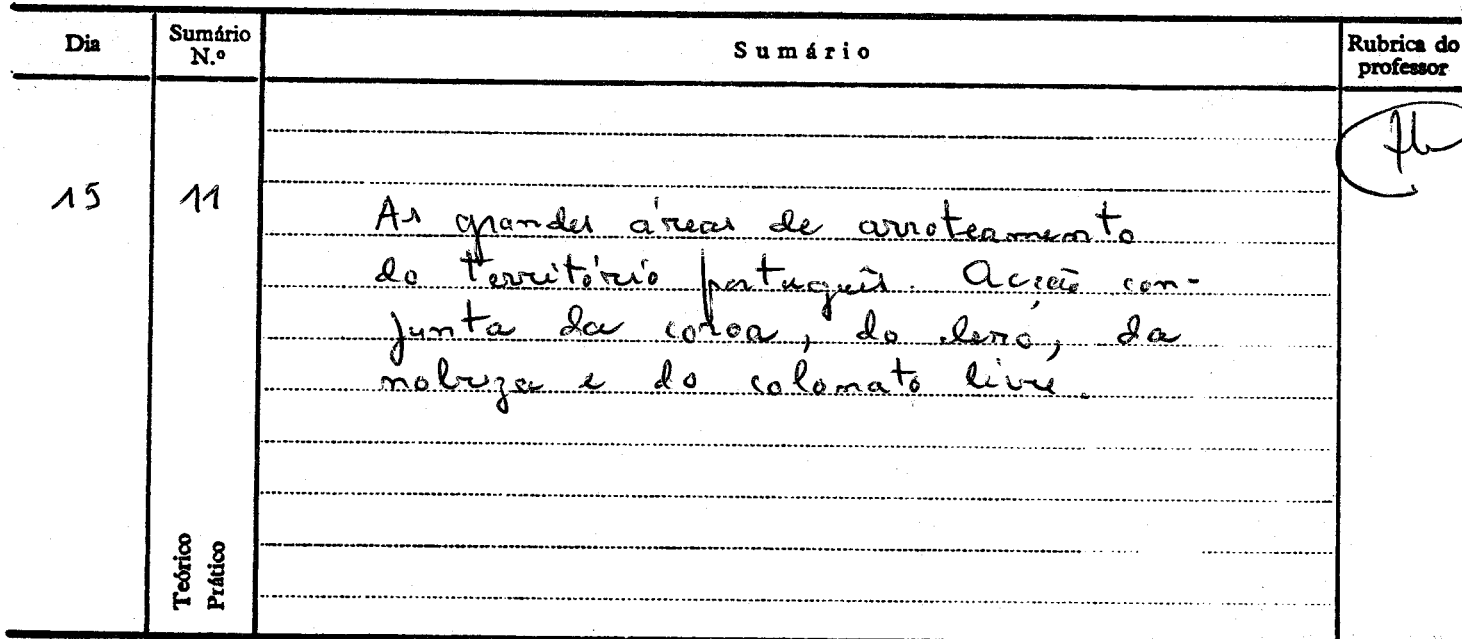 Dia
Sumário N.º
Sumário
Rubrica do professor
15
11
As grandes áreas de arroteamento
do território português. Acção con-
junta da coroa, do clero, da
nobreza e do colonato livre.
Teórico
Prático